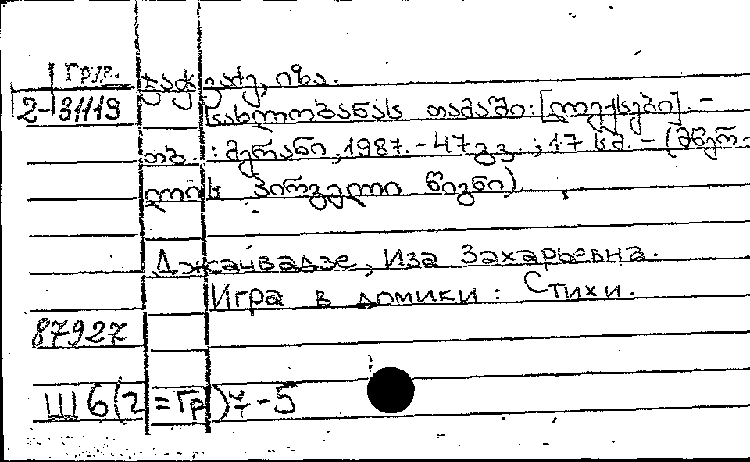 Груз.
ჯაჭვაძე, იზა.
2-31119
სახლობანას თამაში: [ლექსები]. -
თბ. : მერანი, 1987. - 47 გვ. ; 17 სმ. - (მწერ-
ლის პირველი წიგნი)
Джачвадзе, Иза Захарьевна.
Игра в домики : Стихи.
87927
Ш6(2=Гр)7-5